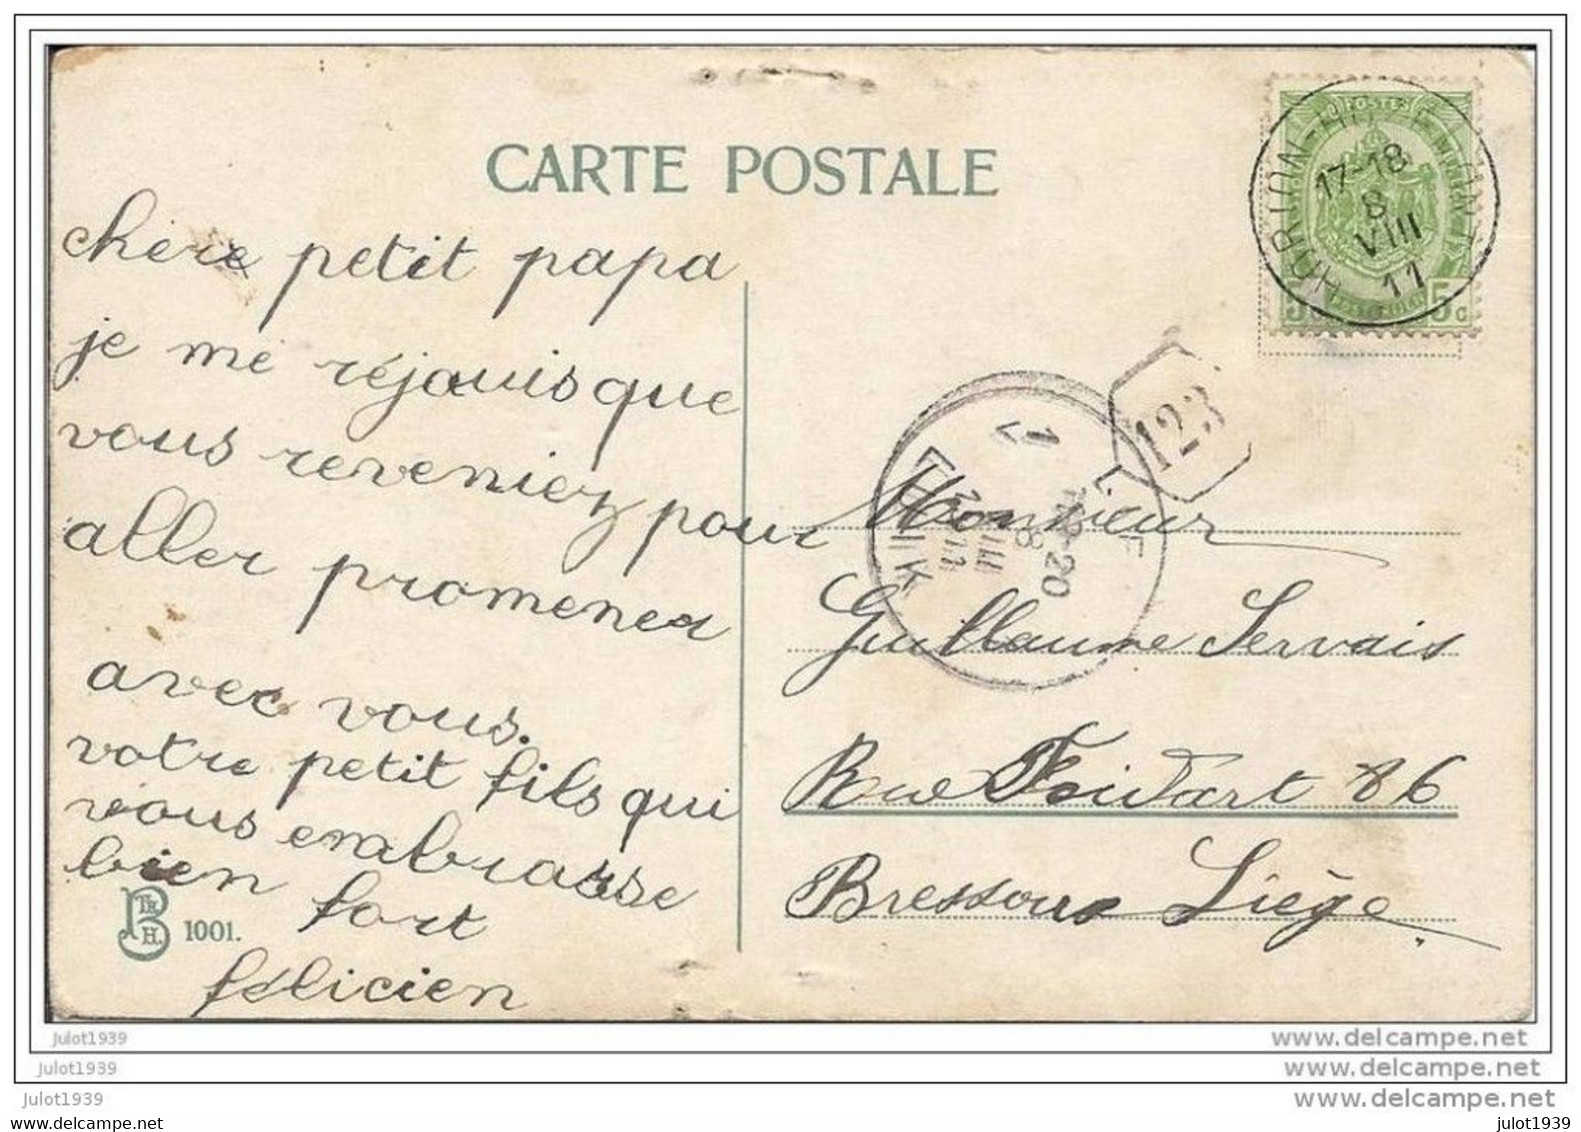 CARTE POSTALE
chère petit papa
je me réjouis que
vous reveniez pour
aller promener
avec vous.
votre petit fils qui
vous embrasse
bien fort
félicien
1001.
POSTES
HORION-HOZÉMONT
17-18
8
VIII
11
5c
123
LUIK
20
8
VIII
Monsieur
Guillaume Servais
Rue Foidart 86
Bressoux Liège
julot1939
www.delcampe.net
julot1939
www.delcampe.net
julot1939
www.delcampe.net
www.delcampe.net
julot1939